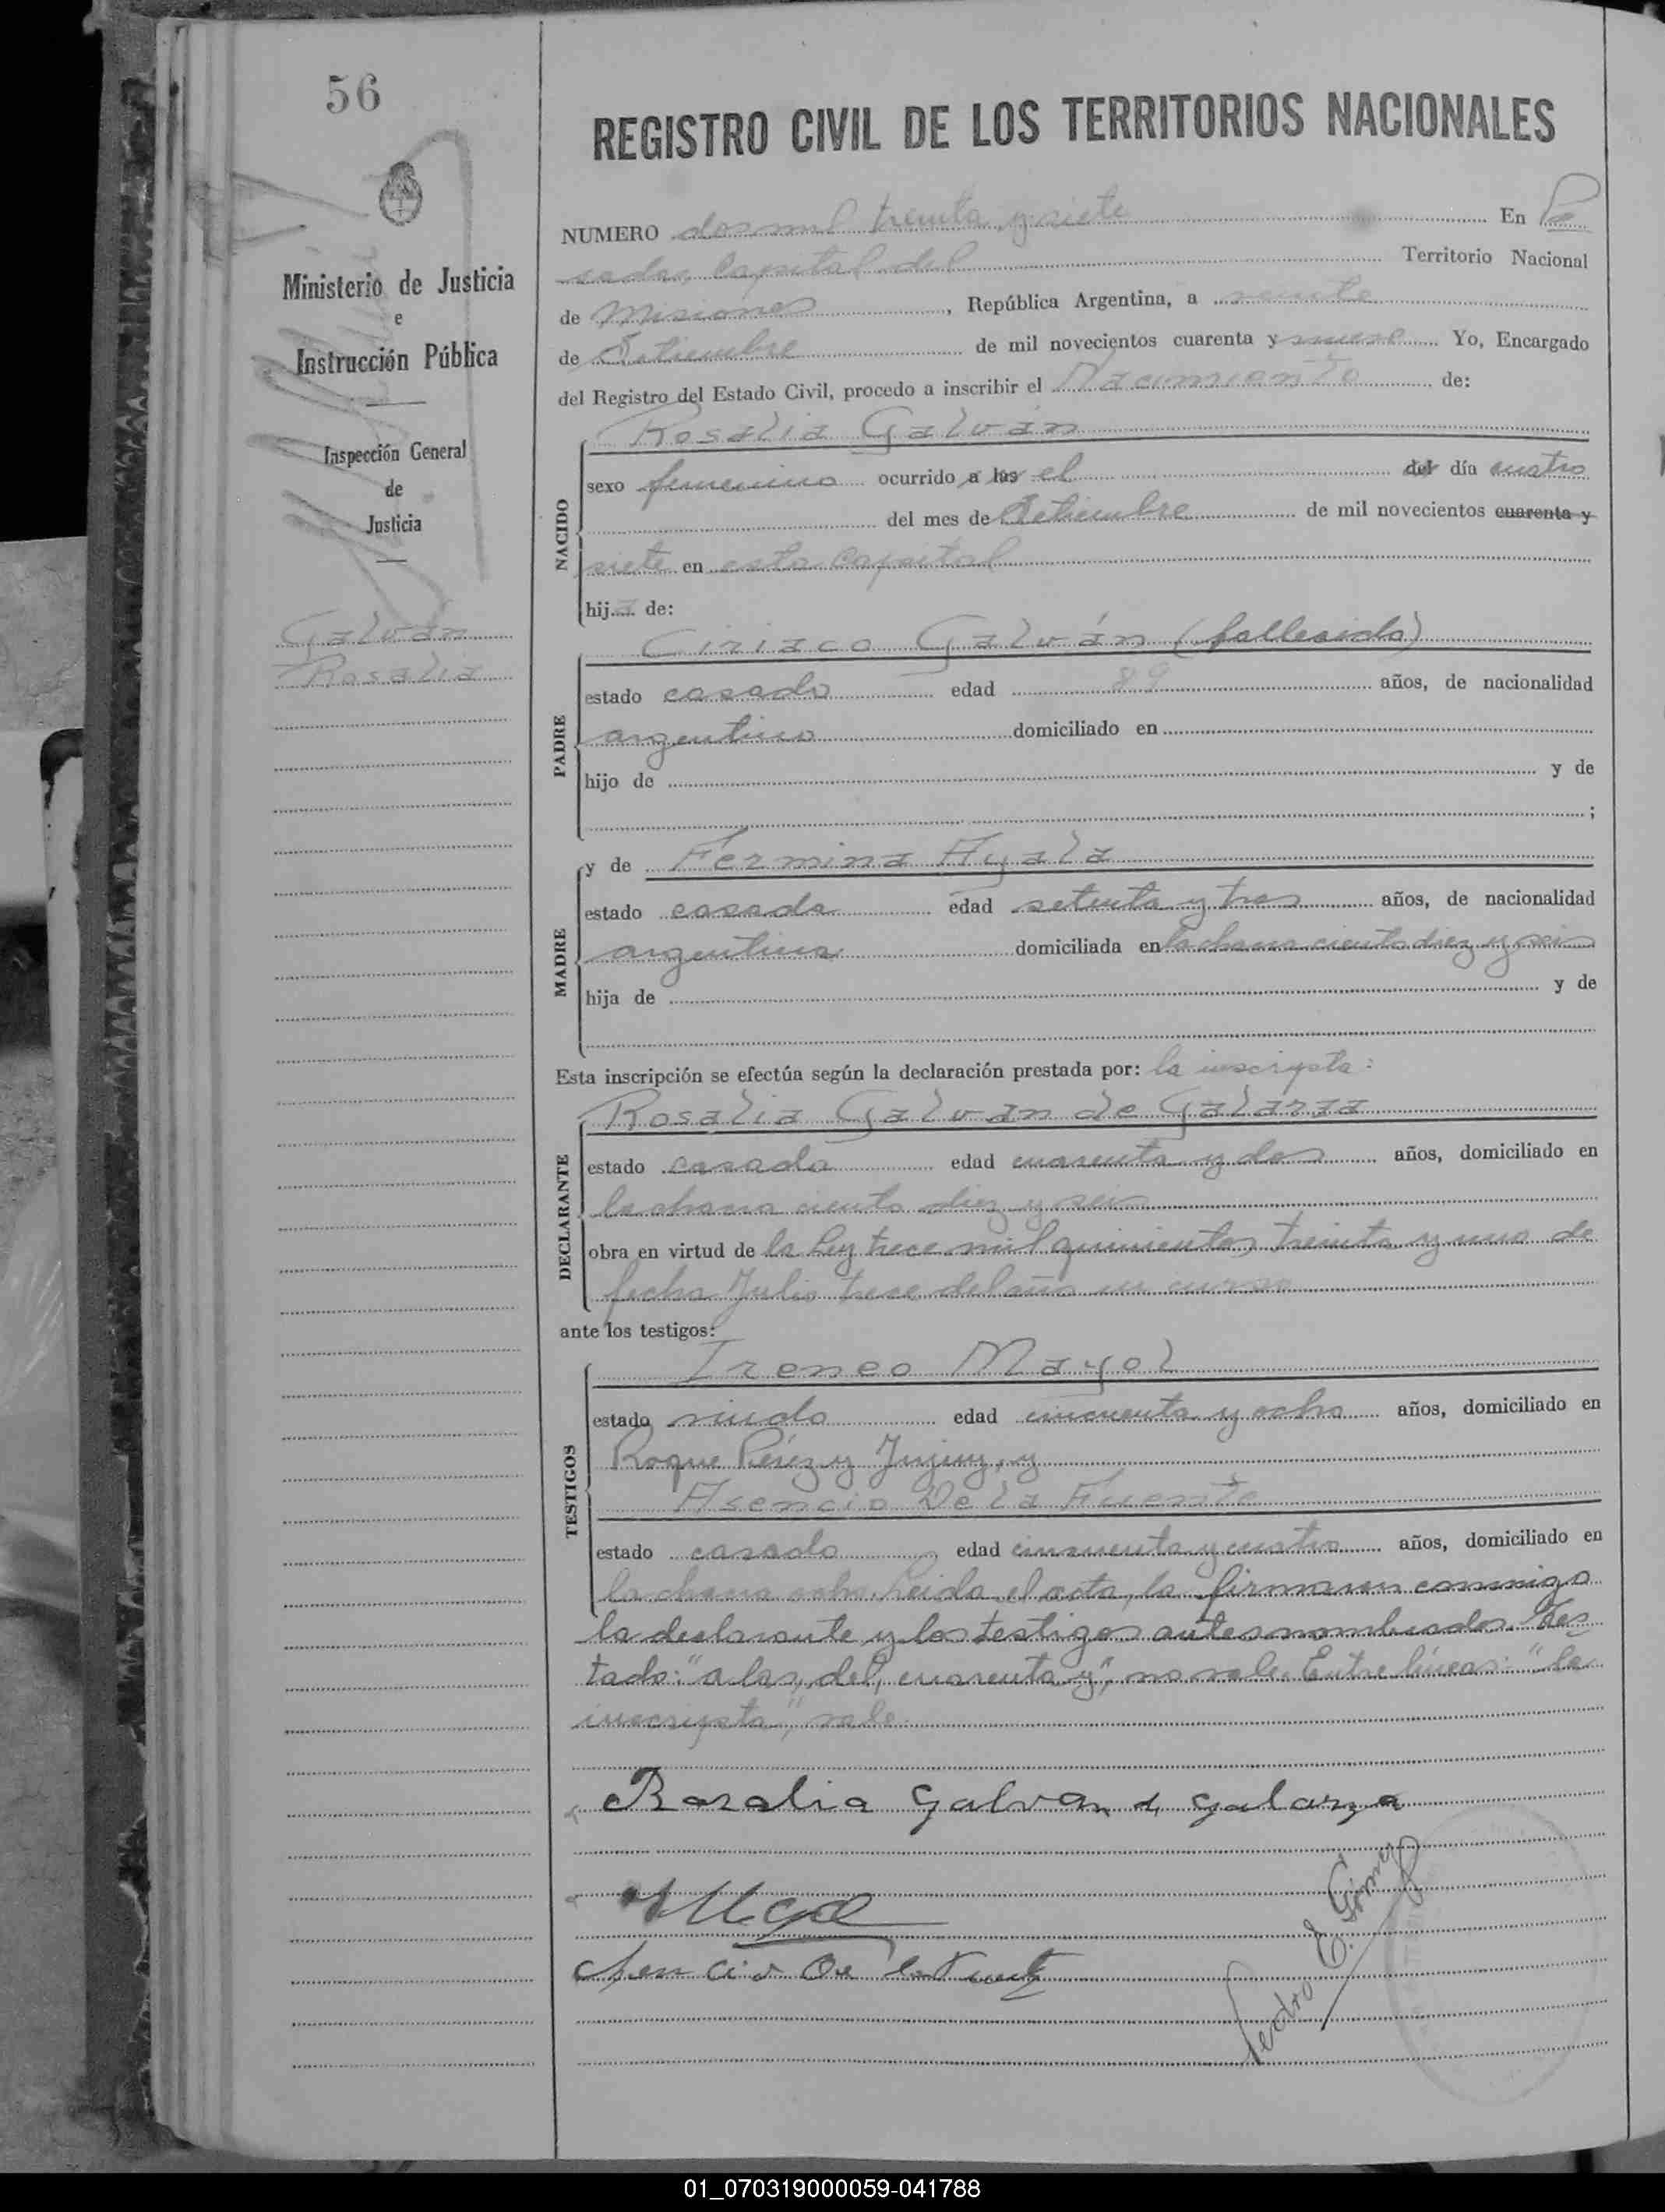 56
REGISTRO CIVIL DE LOS TERRITORIOS NACIONALES
Ministerio de Justicia
e
Instrucción Pública
Inspección General
de
Justicia
Galván
Rosalia
NUMERO dos mil treinta y siete En Po
sadas, Capital del Territorio Nacional
de Misiones, República Argentina, a veinte
de Setiembre de mil novecientos cuarenta y nueve Yo, Encargado
del Registro del Estado Civil, procedo a inscribir el Nacimiento de:
Rosalia Galván
NACIDO
sexo femenino ocurrido a las el del día cuatro
del mes de Setiembre de mil novecientos cuarenta y
siete en esta Capital
hija de:
PADRE
Ciriaco Galván (fallecido)
estado casado edad 89 años, de nacionalidad
argentino domiciliado en
hijo de y de
;
MADRE
y de Fermina Ayala
estado casada edad setenta y tres años, de nacionalidad
argentina domiciliada en la chacra ciento diez y seis
hija de y de
Esta inscripción se efectúa según la declaración prestada por: la inscripta:
DECLARANTE
Rosalia Galván de Galarza
estado casada edad cuarenta y dos años, domiciliado en
la chacra ciento diez y seis
obra en virtud de la Ley trece mil quinientos treinta y uno de
fecha Julio trece del año en curso
ante los testigos:
TESTIGOS
Ireneo Mayol
estado viudo edad cincuenta y ocho años, domiciliado en
Roque Pérez y Jujuy, y
Asencio De la Fuente
estado casado edad cincuenta y cuatro años, domiciliado en
la chacra ocho. Leida el acta, la firmaron conmigo
la declarante y los testigos antes nombrados. Tes
tado: "a las, del, cuarenta y", no vale. Entre líneas: "la
inscripta", vale
Rosalia Galvan d Galarza
Asencio De la Fuente
Pedro E. Gómez
01_070319000059-041788